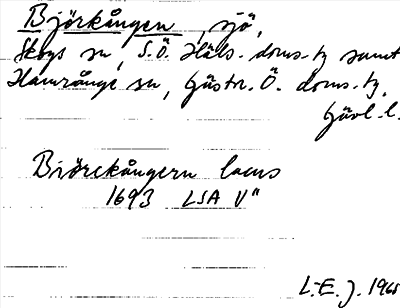 Björkången, sjö,
Skogs sn, S.Ö. Häls. doms. tg samt
Hamrånge sn, Gästr. Ö. doms. tg.
Gävl. l.
Biörckångern lacus
1693 LSA V"
L-E. J. 1965